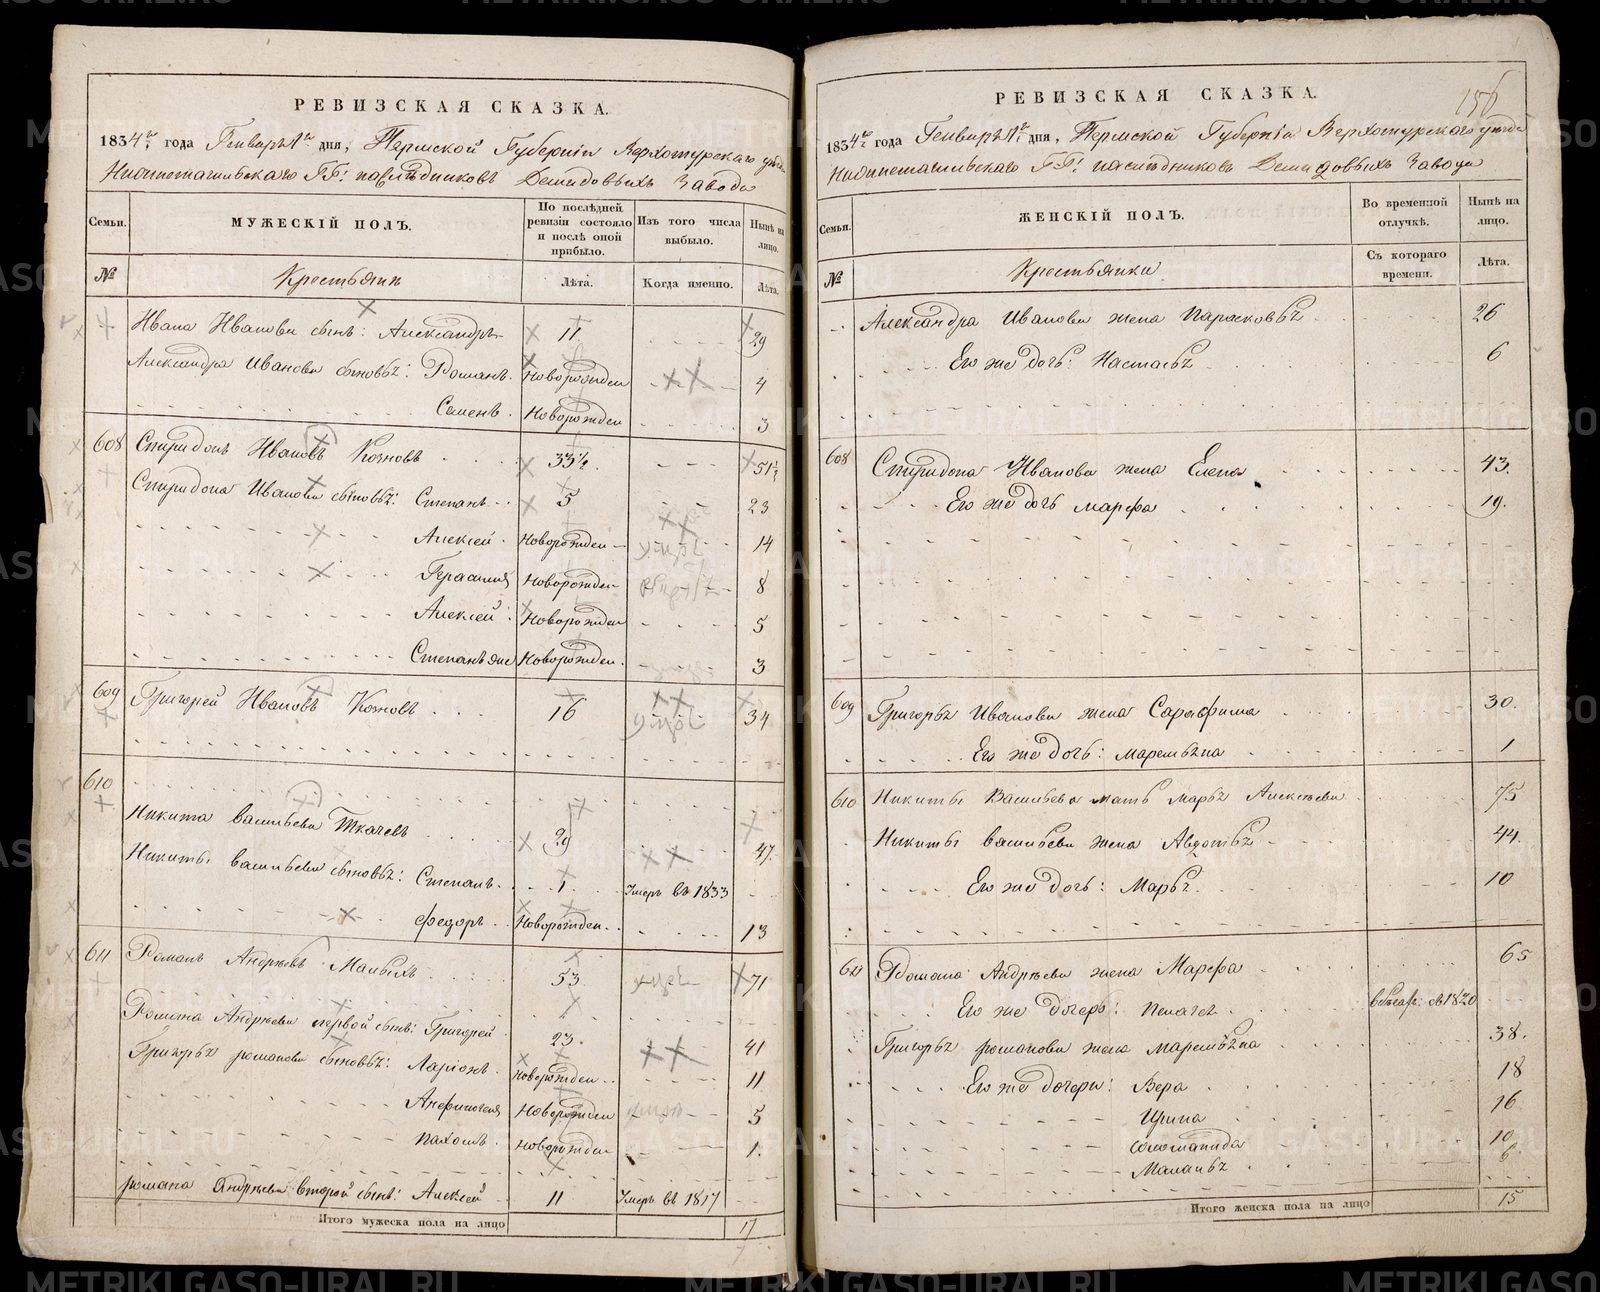 РЕВИЗСКАЯ СКАЗКА.
1834го года Генваря 1го дня, Пермской Губернiи Верхотурскаго уезда
Нижнетагильскаго ГГ: наследниковъ Демидовыхъ Завода
Семьи.
МУЖЕСКIЙ ПОЛЪ.
По последней ревизiи состояло и после оной прибыло.
Изъ того числа выбыло.
Ныне на лицо.
№
Крестьянъ
Лѣта.
Когда именно.
Лѣта.
Ивана Иванова сынъ: Александръ 11 29
Александра Иванова сыновья: Романъ Новорожден 4
Семенъ Новорожден 3
608 Спиридонъ Ивановъ Козновъ 33½ 51½
Спиридона Иванова сыновья: Степанъ 5 23
Алексей Новорожден 14
Герасимъ Новорожден 8
Алексей Новорожден 5
Степанъ же Новорожден 3
609 Григорей Ивановъ Козновъ 16 34
610
Никита Васильевъ Ткачевъ 29 47
Никиты Васильева сыновья: Степанъ 1 Умеръ въ 1833
Федоръ Новорожден 13
611 Романъ Андреевъ 53 71
Романа Андреева первой сынъ: Григорей 23 41
Григорья Романова сыновья: Ларiонъ Новорожден 11
Новорожден 5
Пахомъ Новорожден 1
Романа Андреева второй сынъ: Алексей 11 Умеръ въ 1817
Итого мужеска пола на лицо 17
156
РЕВИЗСКАЯ СКАЗКА.
1834го года Генваря 1го дня, Пермской Губернiи Верхотурскаго уезда
Нижнетагильскаго ГГ: наследниковъ Демидовыхъ Завода
Семьи.
ЖЕНСКIЙ ПОЛЪ.
Во временной отлучкѣ.
Нынѣ на лицо.
№
Крестьянки
Съ котораго времени.
Лѣта.
Александра Иванова жена Парасковья 26
Его же дочь: Настасья 6
608 Спиридона Иванова жена Елена 43
Его же дочь Марфа 19
609 Григорья Иванова жена Сарафима 30
Его же дочь: Маремьяна 1
610 Никиты Васильева мать Марья Алексеева 75
Никиты Васильева жена Авдотья 44
Его же дочь: Марья 10
611 Романа Андреева жена Марфа 65
Его же дочерь: Пелагея 1820
Григорья Романова жена Маремьяна 38
Его же дочери: Вера 18
Ирина 16
Соломанида 10
Маланья 6
Итого женска пола на лицо 15
METRIKI.GASO-URAL.RU